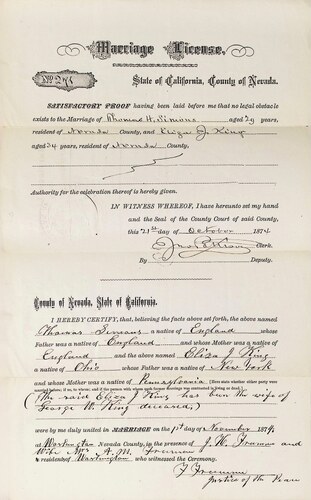 Marriage License.
State of California, County of Nevada.
SATISFACTORY PROOF having been laid before me that no legal obstacle
exists to the Marriage of Thomas H. Simons aged 29 years,
resident of Nevada County, and Eliza J King
aged 34 years, resident of Nevada County,
Authority for the celebration thereof is hereby given.
IN WITNESS WHEREOF, I have hereunto set my hand
and the Seal of the County Court of said County,
this 21st day of October 1874
Clerk.
By Deputy.
County of Nevada, State of California.
I HEREBY CERTIFY, that, believing the facts above set forth, the above named
Thomas Simons a native of England whose
Father was a native of England and whose Mother was a native of
England and the above named Eliza J King
a native of Ohio whose Father was a native of New York
and whose Mother was a native of Pennsylvania
(The said Eliza J King has been the wife of
George W. King deceased)
were by me duly united in MARRIAGE on the 1st day of November 1874,
at Washington Nevada County, in the presence of J. H. and
Wife Mrs A. M.
a resident of Washington who witnessed the Ceremony.
Justice of the Peace